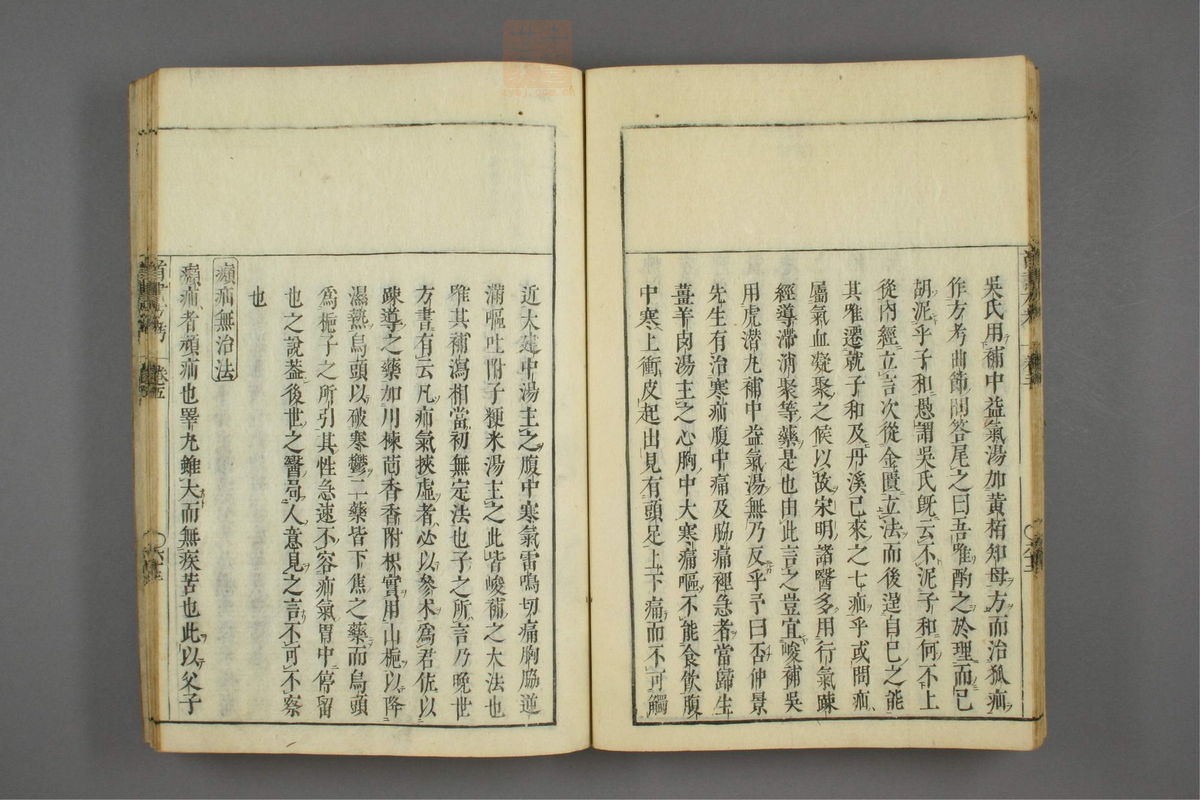 吳氏用補中益氣湯加黃栢知母方而治狐疝
作方考曲節問答尾之曰吾唯酌之於理而已
胡泥乎子和愚謂吳氏既云不泥子和何不上
從內經立言次從金匱立法而後逞自己之能
其唯遷就子和及丹溪已來之七疝乎或問疝
屬氣血凝聚之候以故宋明諸醫多用行氣疎
經導滯消聚等藥是也由此言之豈宜峻補吳
用虎潛丸補中益氣湯無乃反乎予曰否仲景
先生有治寒疝腹中痛及脇痛裡急者當歸生
薑羊肉湯主之心胸中大寒痛嘔不能食飲腹
中寒上衝皮起出見有頭足上下痛而不可觸
近大建中湯主之腹中寒氣雷鳴切痛胸脇逆
滿嘔吐附子粳米湯主之此皆峻補之大法也
唯其補瀉相當初無定法也子之所言乃晚世
方書有云凡疝氣挾虛者必以參朮爲君佐以
疎導之藥加川楝茴香香附枳實用山梔以降
濕熱烏頭以破寒鬱二藥皆下焦之藥而烏頭
爲梔子之所引其性急速不容疝氣胃中停留
也之說葢後世之醫咼人意見之言不可不察
也
㿗疝無治法
㿗疝者頑疝也睪丸雖大而無疾苦也此以父子
卷五